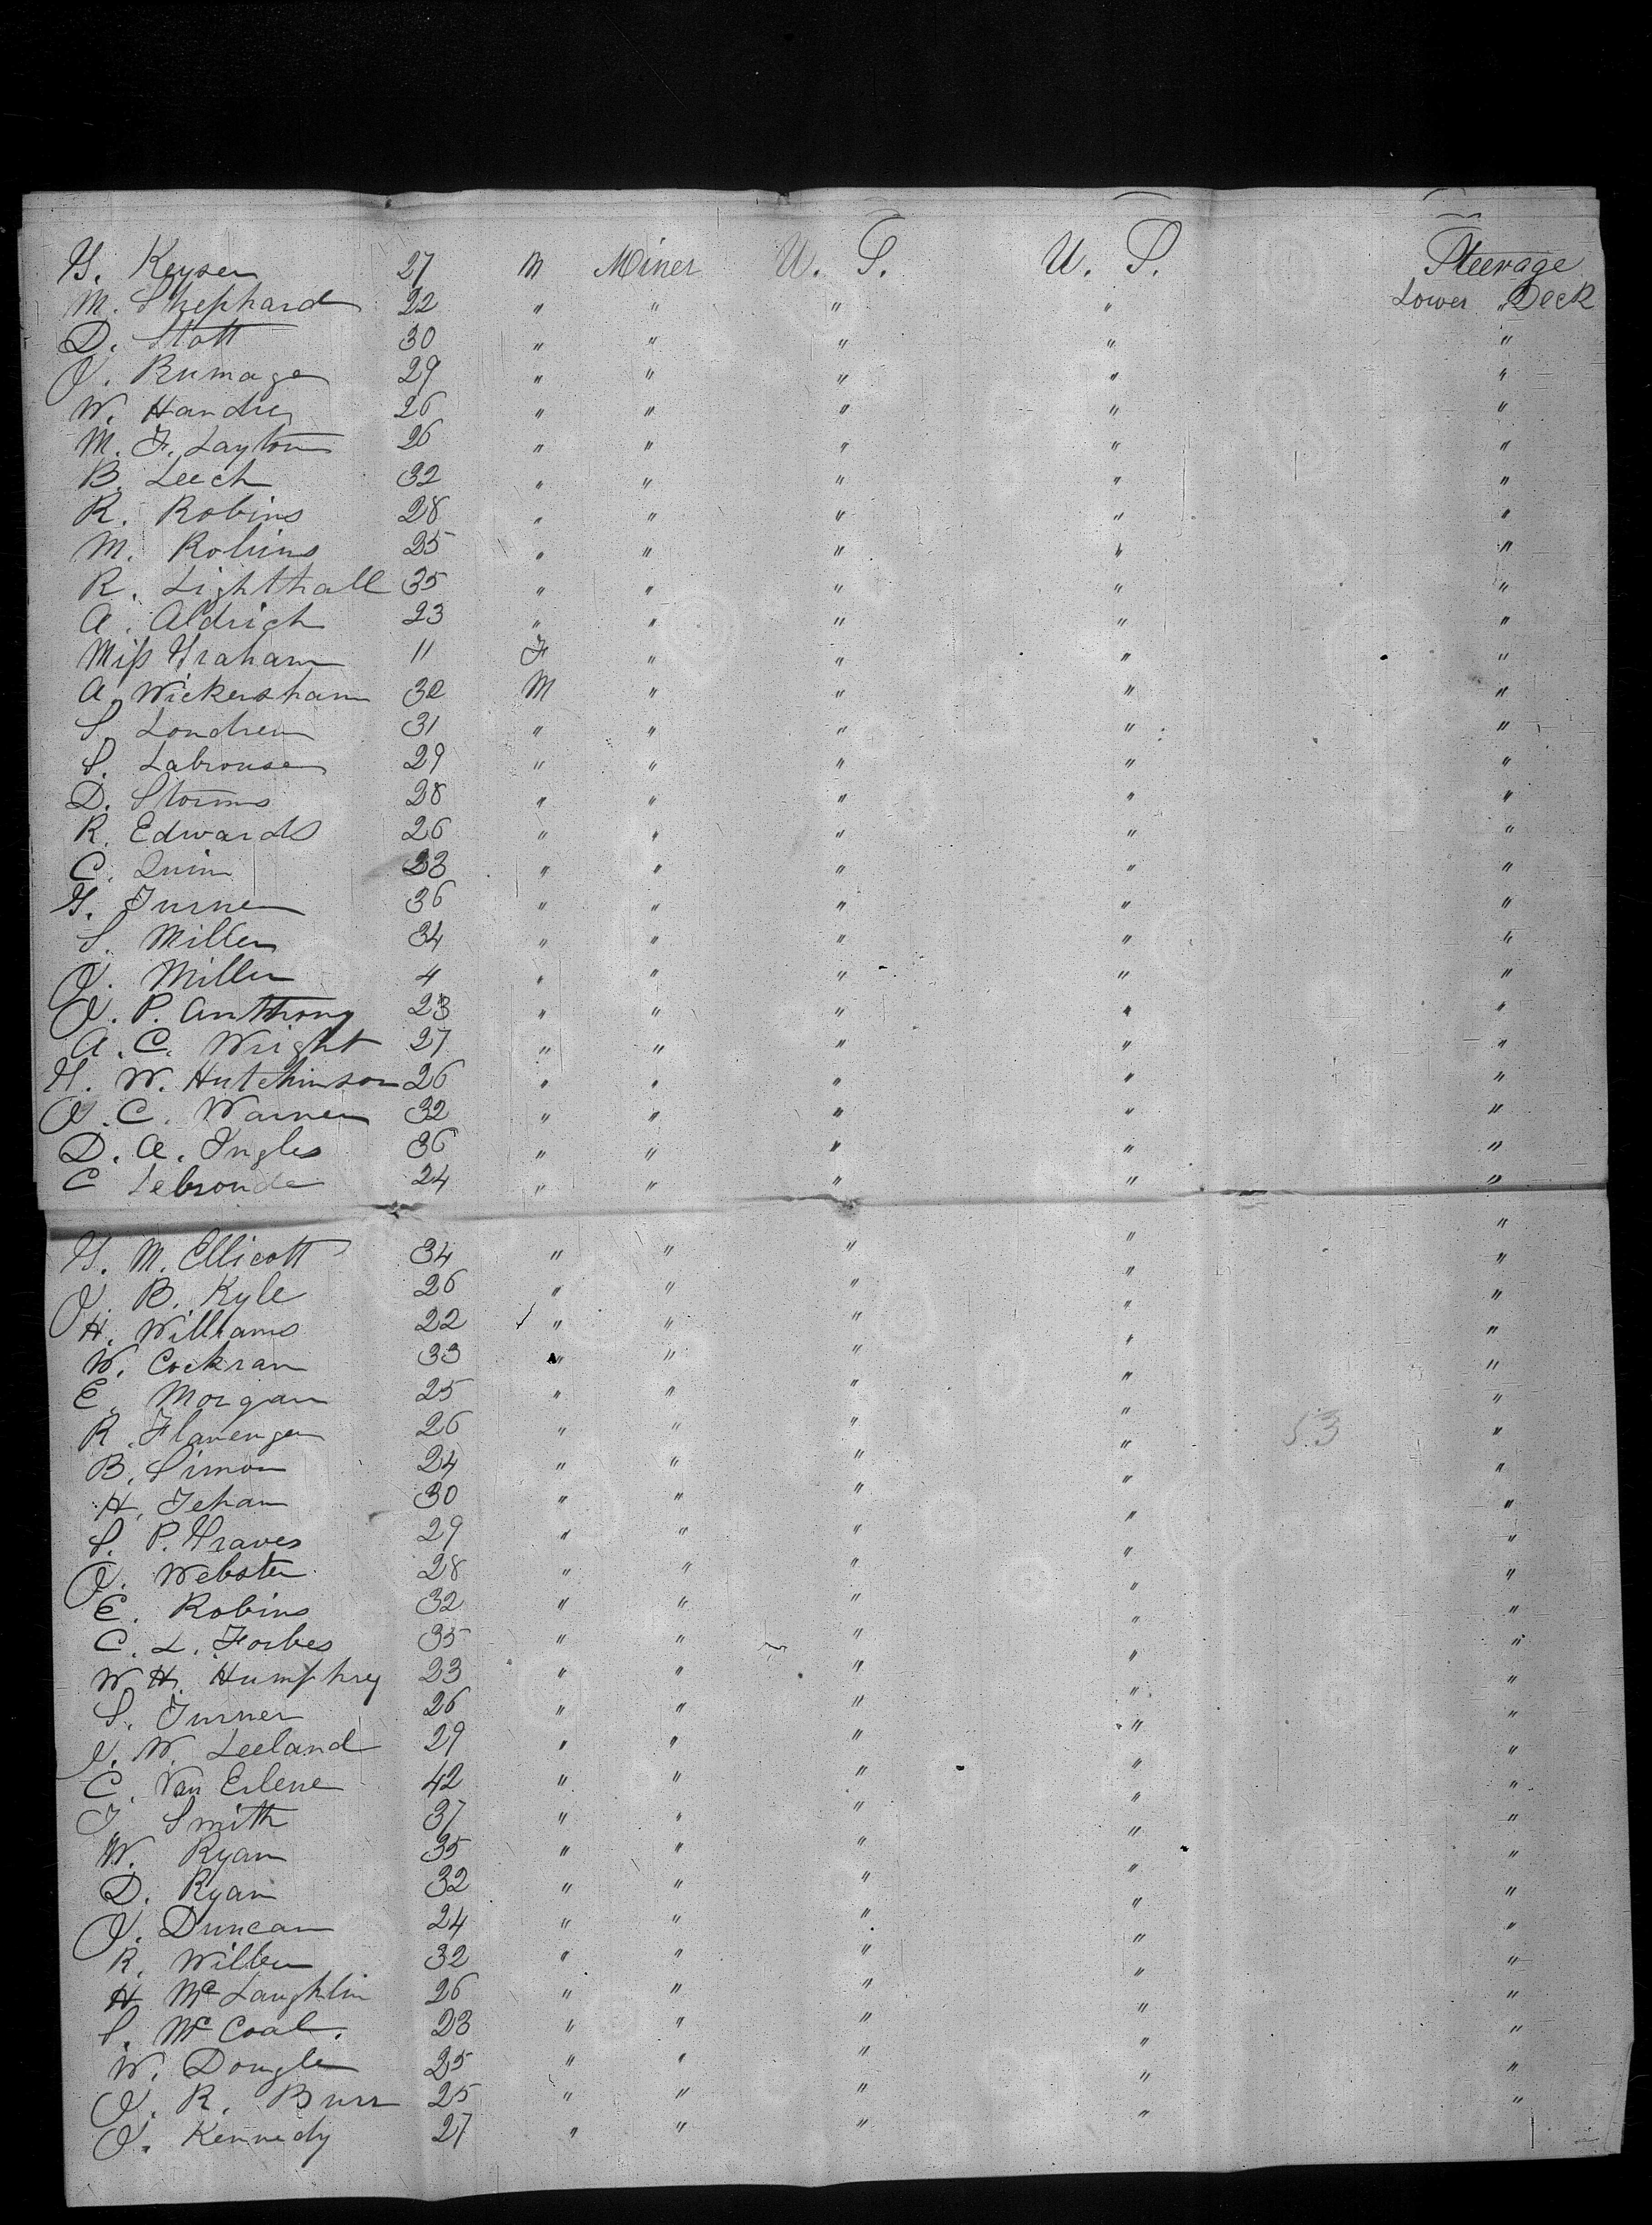 G. Keyser 27 M Miner U. S. U. S. Steerage
M. Shephard 22 " " " " Lower " Deck
D. Statt 30 " " " " "
J. Rumage 29 " " " " "
W. Handre 26 " " " " "
M. F. Layton 26 " " " " "
B. Leech 32 " " " " "
R. Robins 28 " " " " "
M. Robins 25 " " " " "
R. Lighthall 35 " " " " "
A. Aldrich 23 " " " " "
Miss Graham 11 F " " " "
A. Wickersham 32 M " " " "
S. Londren 31 " " " " "
S. Labrouse 29 " " " " "
D. Storms 28 " " " " "
R. Edwards 26 " " " " "
C. Quinn 23 " " " " "
G. Turner 36 " " " " "
S. Miller 34 " " " " "
J. Miller 4 " " " " "
J. P. Antthony 23 " " " " "
A. C. Wright 27 " " " " "
G. W. Hutchinson 26 " " " " "
J. C. Warner 32 " " " " "
D. A. Ingles 36 " " " " "
C Lebronde 24 " " " " "
"
G. M. Ellicott 34 " " " " "
J. B. Kyle 26 " " " " "
H. Williams 22 " " " " "
W. Cockran 33 " " " " "
E. Morgan 25 " " " " "
R. Flanengen 26 " " " " 53 "
B. Simon 24 " " " " "
H. Tehan 30 " " " " "
S. P. Graves 29 " " " " "
J. Webster 28 " " " " "
E. Robins 32 " " " " "
C. L. Forbes 35 " " " " "
W. H. Humphrey 23 " " " " "
S. Turner 26 " " " " "
J. W. Leeland 29 " " " " "
C. Van Erlene 42 " " " " "
T. Smith 37 " " " " "
W. Ryan 35 " " " " "
D. Ryan 32 " " " " "
J. Duncan 24 " " " " "
R. Wilber 32 " " " " "
H McLaughlin 26 " " " " "
S. McCoal. 23 " " " " "
W. Dougle 25 " " " " "
J. R. Burr 25 " " " " "
J. Kennedy 27 " " " "